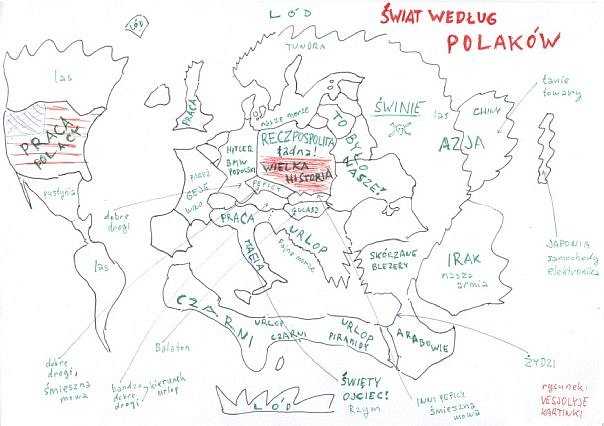 ŚWIAT WEDŁUG
POLAKÓW
LÓD
LÓD
TUNDRA
las
PRACA
POLACY
pustynia
las
PRACA
nasze morze
RZECZPOSPOLITA
ładna!
WIELKA
HISTORIA
TO BYŁO
NASZE?
HITLER
BMW
PEPICY
GEJE
WINO
GULASZ
PRACA
MAFIA
URLOP
fajne morze
ŚWINIE
las
CHINY
AZJA
tanie
towary
JAPONIA
samochody
elektronika
SKÓRZANE
BLEZERY
IRAK
nasza
armia
CZARNI
URLOP
CZARNI
URLOP
PIRAMIDY
ARABOWIE
ŻYDZI
dobre
drogi
dobre
drogi,
śmieszna
mowa
bardzo
dobre
drogi,
kierunek
urlop
Balaton
ŚWIĘTY
OJCIEC!
Rzym
INNI PEPICY
śmieszna
mowa
LÓD
rysunek:
VESJOLYJE
KARTINKI